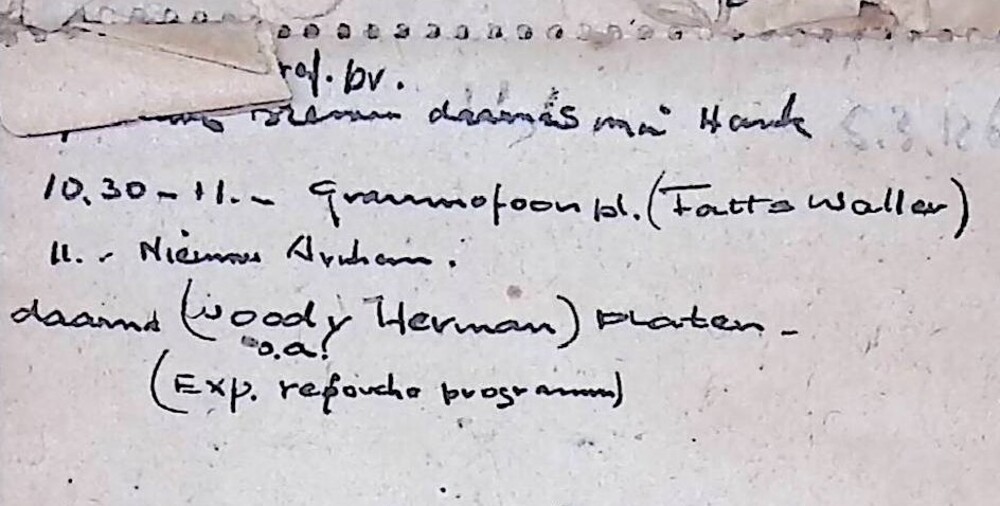 ref. br.
daarnas
10.30 - 11. - Grammofoon pl. (Fatts Waller)
11. - Nieuws Arnhem.
daarna (Woody Herman) platen -
o.a.
(Exp. programm)